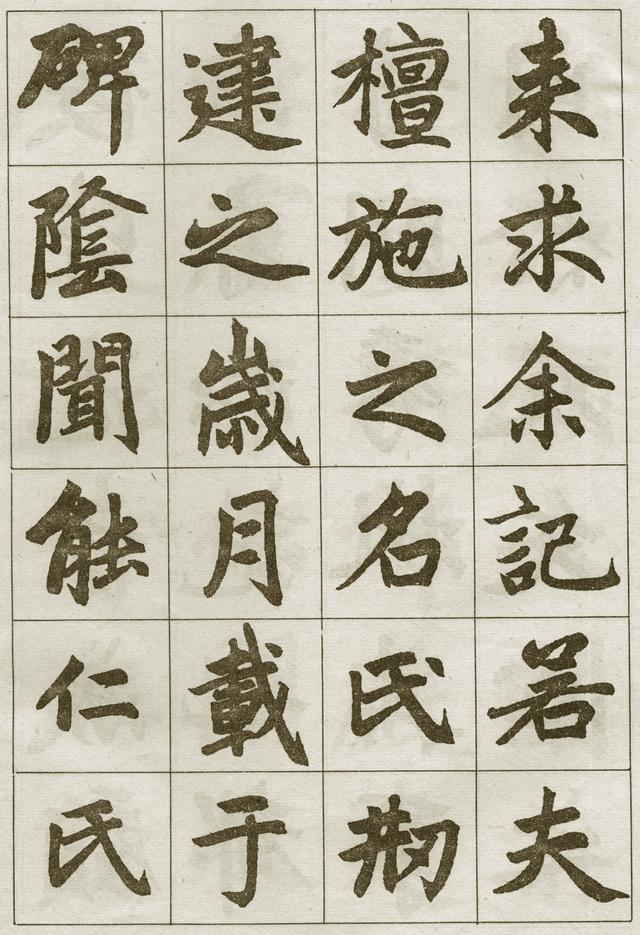 来求余記若夫
檀施之名氏刱
建之歳月載于
碑陰聞能仁氏